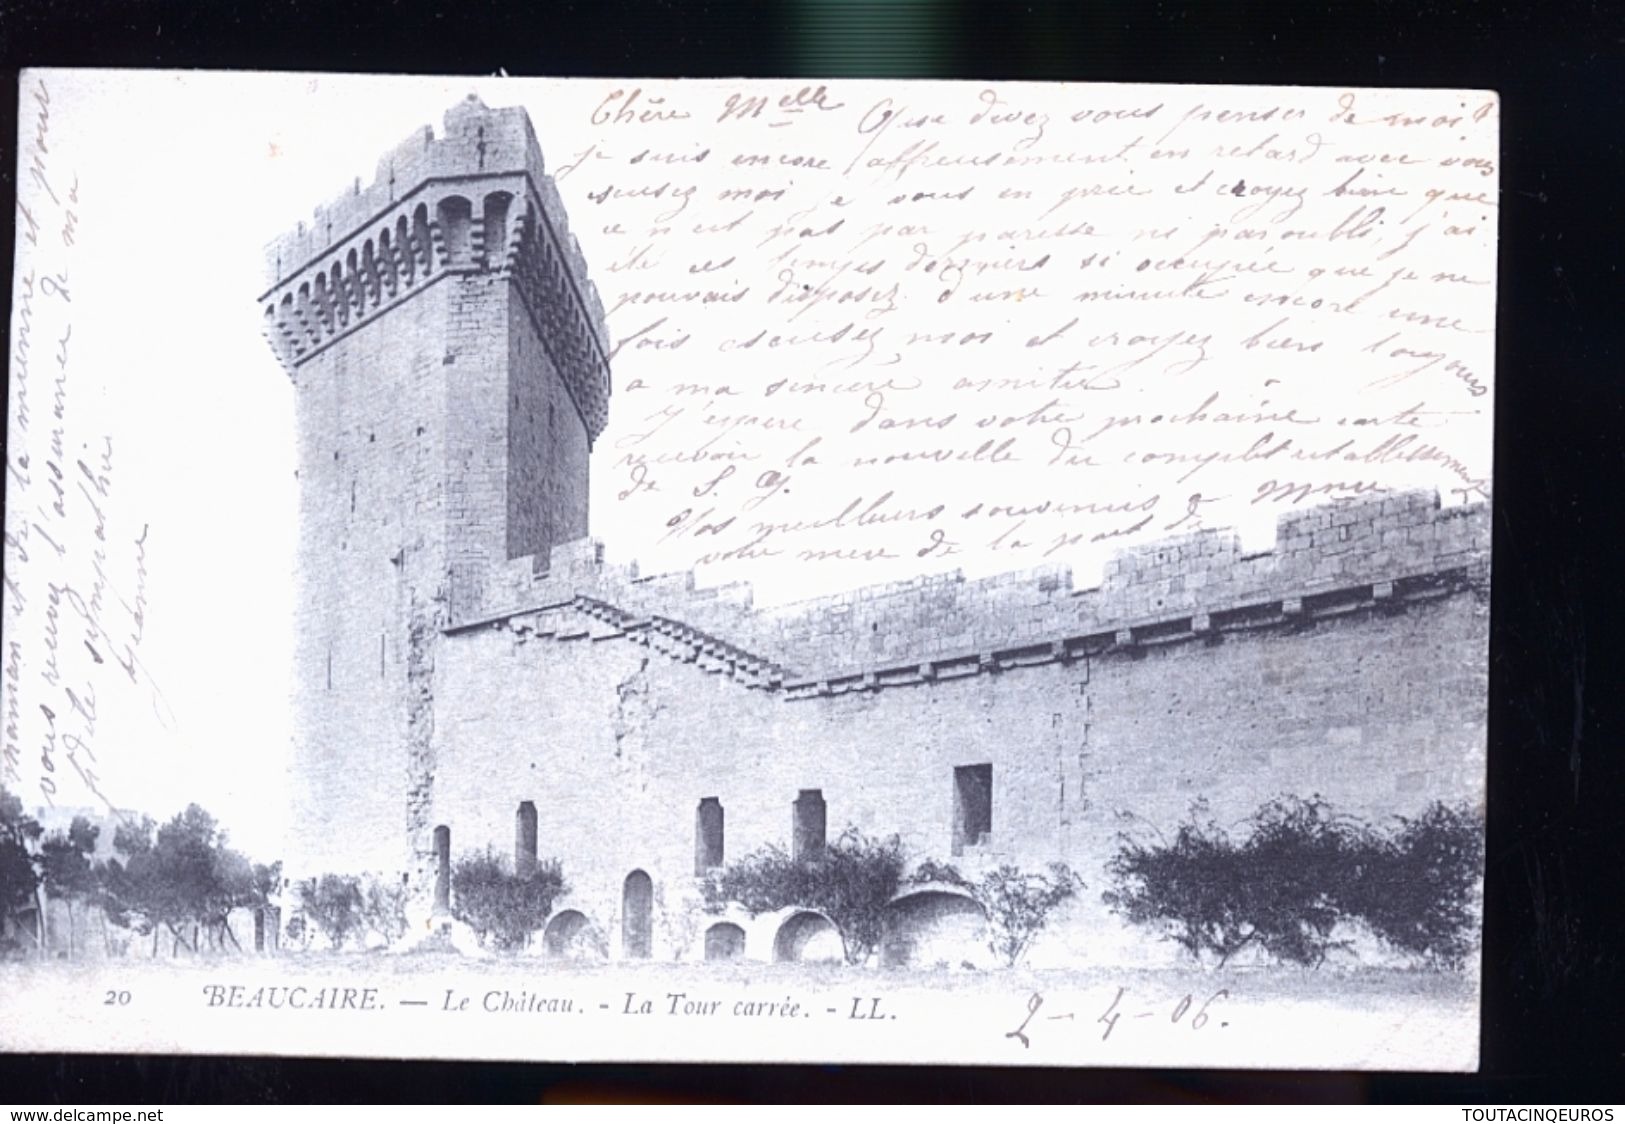 Chère Melle Que devez vous penser de moi?
je suis encore affreusement en retard avec vous
scusez moi je vous en prie et croyez bien que
ce n'est pas par paresse ni par oubli, j'ai
été ces temps derniers si occupée que je ne
pouvais disposez d'une minute encore une
fois escusez moi et croyez bien toujours
a ma sincère amitié.
J'espère dans votre prochaine carte
recevoir la nouvelle du complet retablissement
de S. G.
Nos meilleurs souvenirs a Mme
votre mère de la part de
maman et de la mienne et pour
vous recevez l'assurance de ma
fidèle sympathie
Jeanne
20 BEAUCAIRE. — Le Château. - La Tour carrée. - LL.
2-4-06.
www.delcampe.net
TOUTACINQEUROS